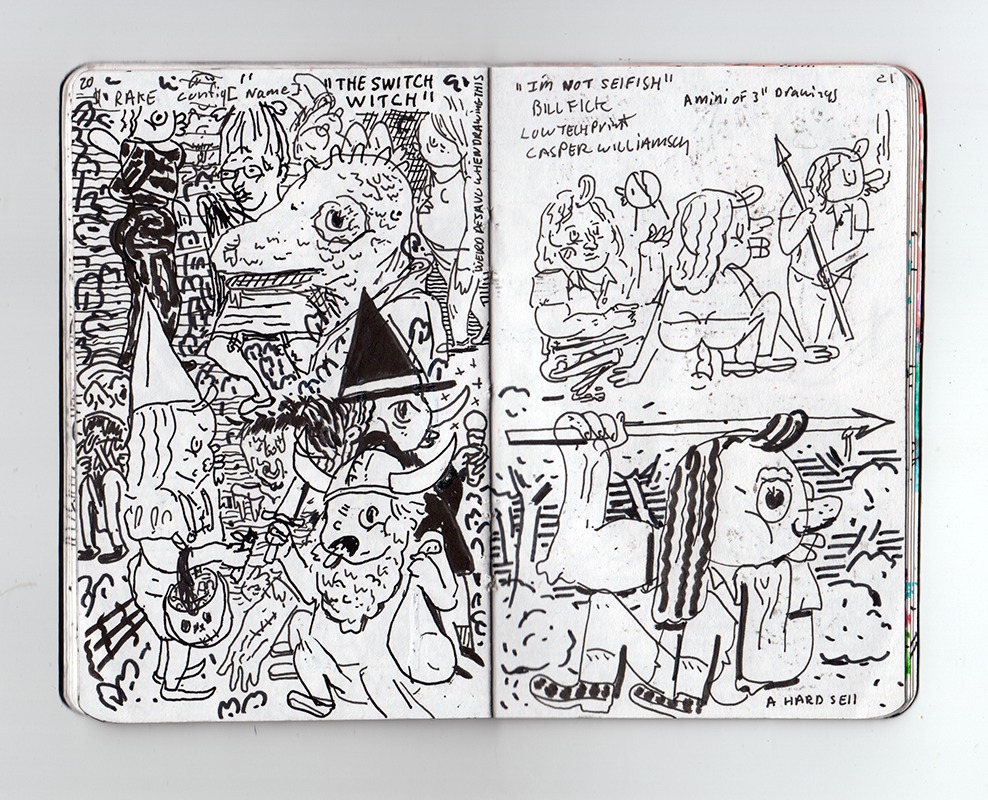 20
"RAKE Config[Name]"
"THE SWITCH
WITCH"
WEIRD DEJAVU WHEN DRAWING THIS
21
"I'M NOT SELFISH"
BILL FICK
LOWTECHPRINT
CASPER WILLIAMSON
A mini of 3" Drawings
A HARD SEll